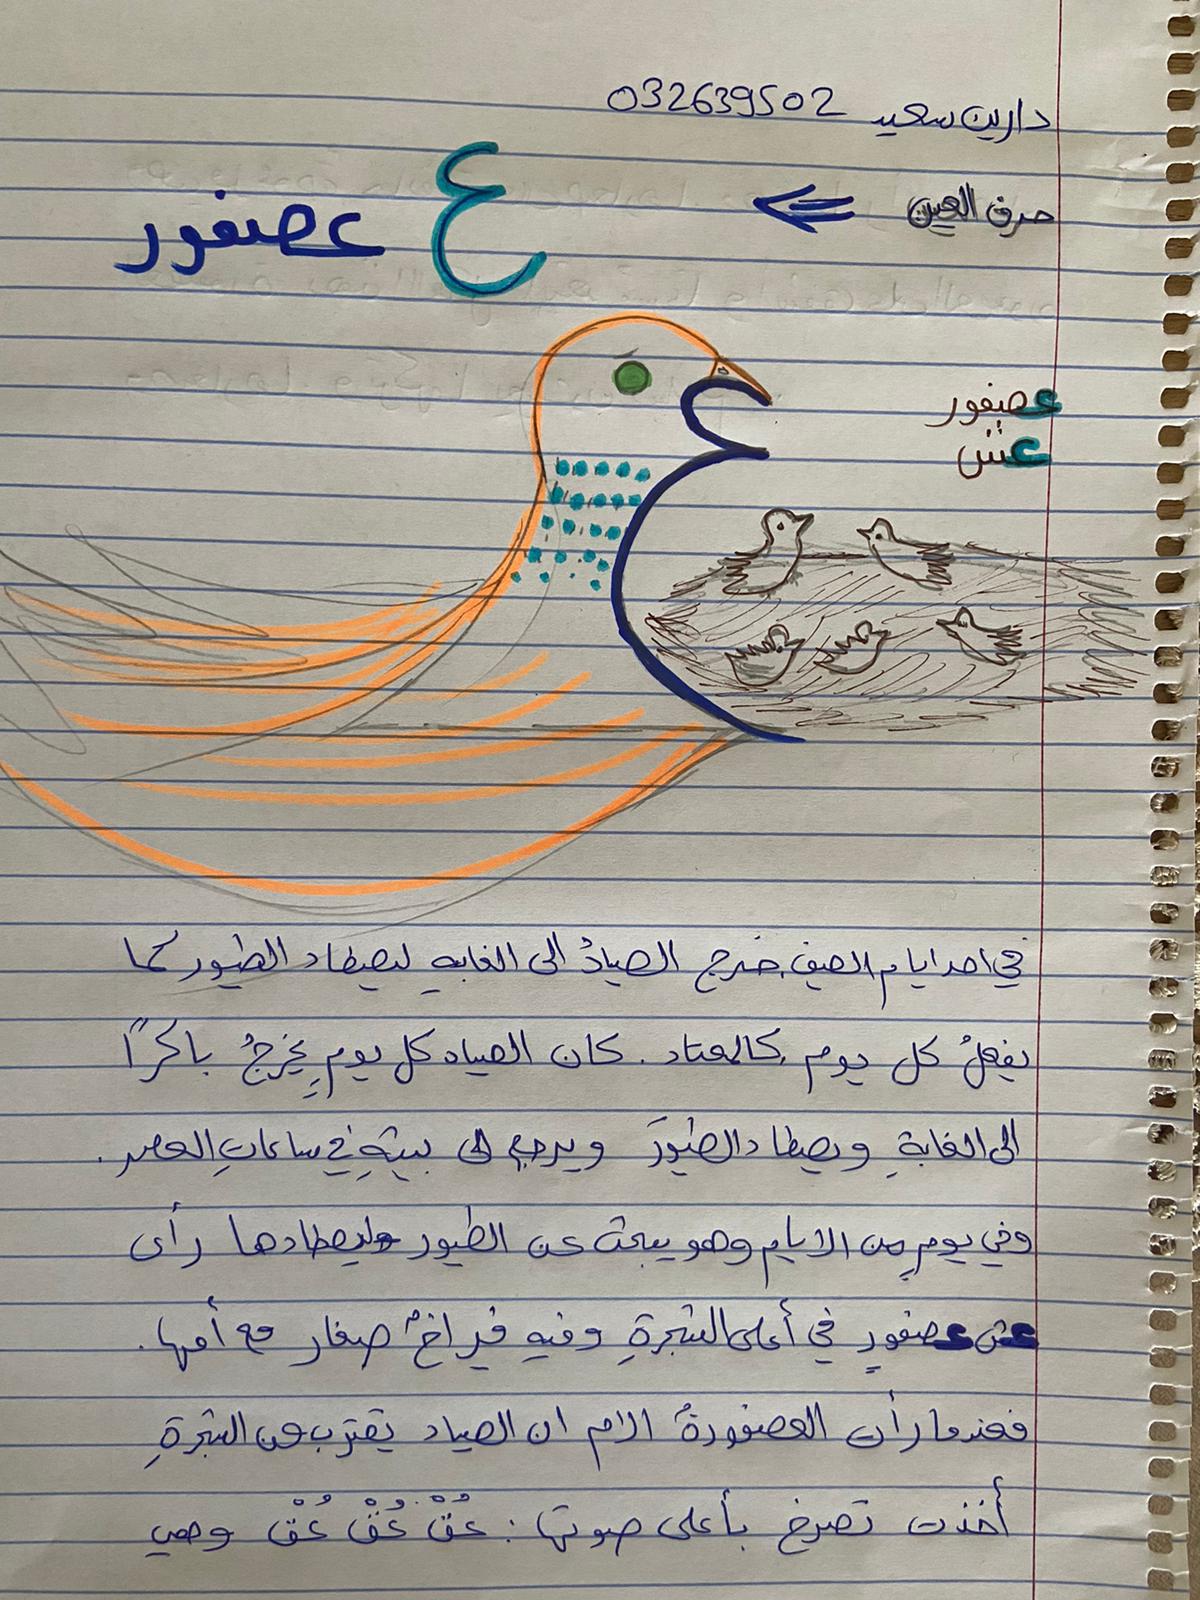 دارين سعيد 032639502
حرف العين
ع عصفور
عصفور
عش
في احد ايام الصيف خرج الصيادُ الى الغابهِ ليصطاد الطيور كما
يفعلُ كل يوم كالمعتاد . كان الصياد كل يومٍ يخرجُ باكرًا
الى الغابةِ ويصطاد الطيورَ ويرجع الى بيتهِ في ساعاتِ العصر .
وفي يومٍ من الايام وهو يبحث عن الطيور ليصطادها رأى
عش عصفورٍ في أعلى الشجرةِ وفيه فراخٌ صغار مع أمها .
فعندما رأت العصفورةُ الام ان الصياد يقترب من الشجرةِ
أخذت تصرخ بأعلى صوتها : عُقْ عُقْ عُقْ وهي